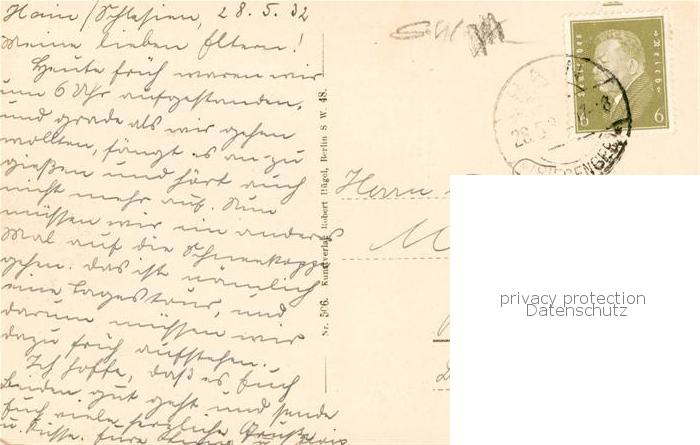 Hain/Schlesien, 28.5.32
Meine lieben Eltern!
Heute früh waren wir
um 6 Uhr aufgestanden,
und grade als wir gehen
wollten, fängt es an zu
gießen und hört auch
nicht mehr auf. Nun
müssen wir ein anderes
Mal auf die Schneekoppe
gehen. Das ist nämlich
eine Tagestour, und
darum müssen wir
dazu früh aufstehen.
Ich hoffe, daß es Euch
beiden gut geht und sende
Euch viele herzliche Grüße
u. Küsse. Eure
Nr. 506. Kunstverlag Robert Hügel, Berlin SW. 48.
Deutsches Reich
6 6
28.5
RIESENGEB
Herrn
M
privacy protection
Datenschutz